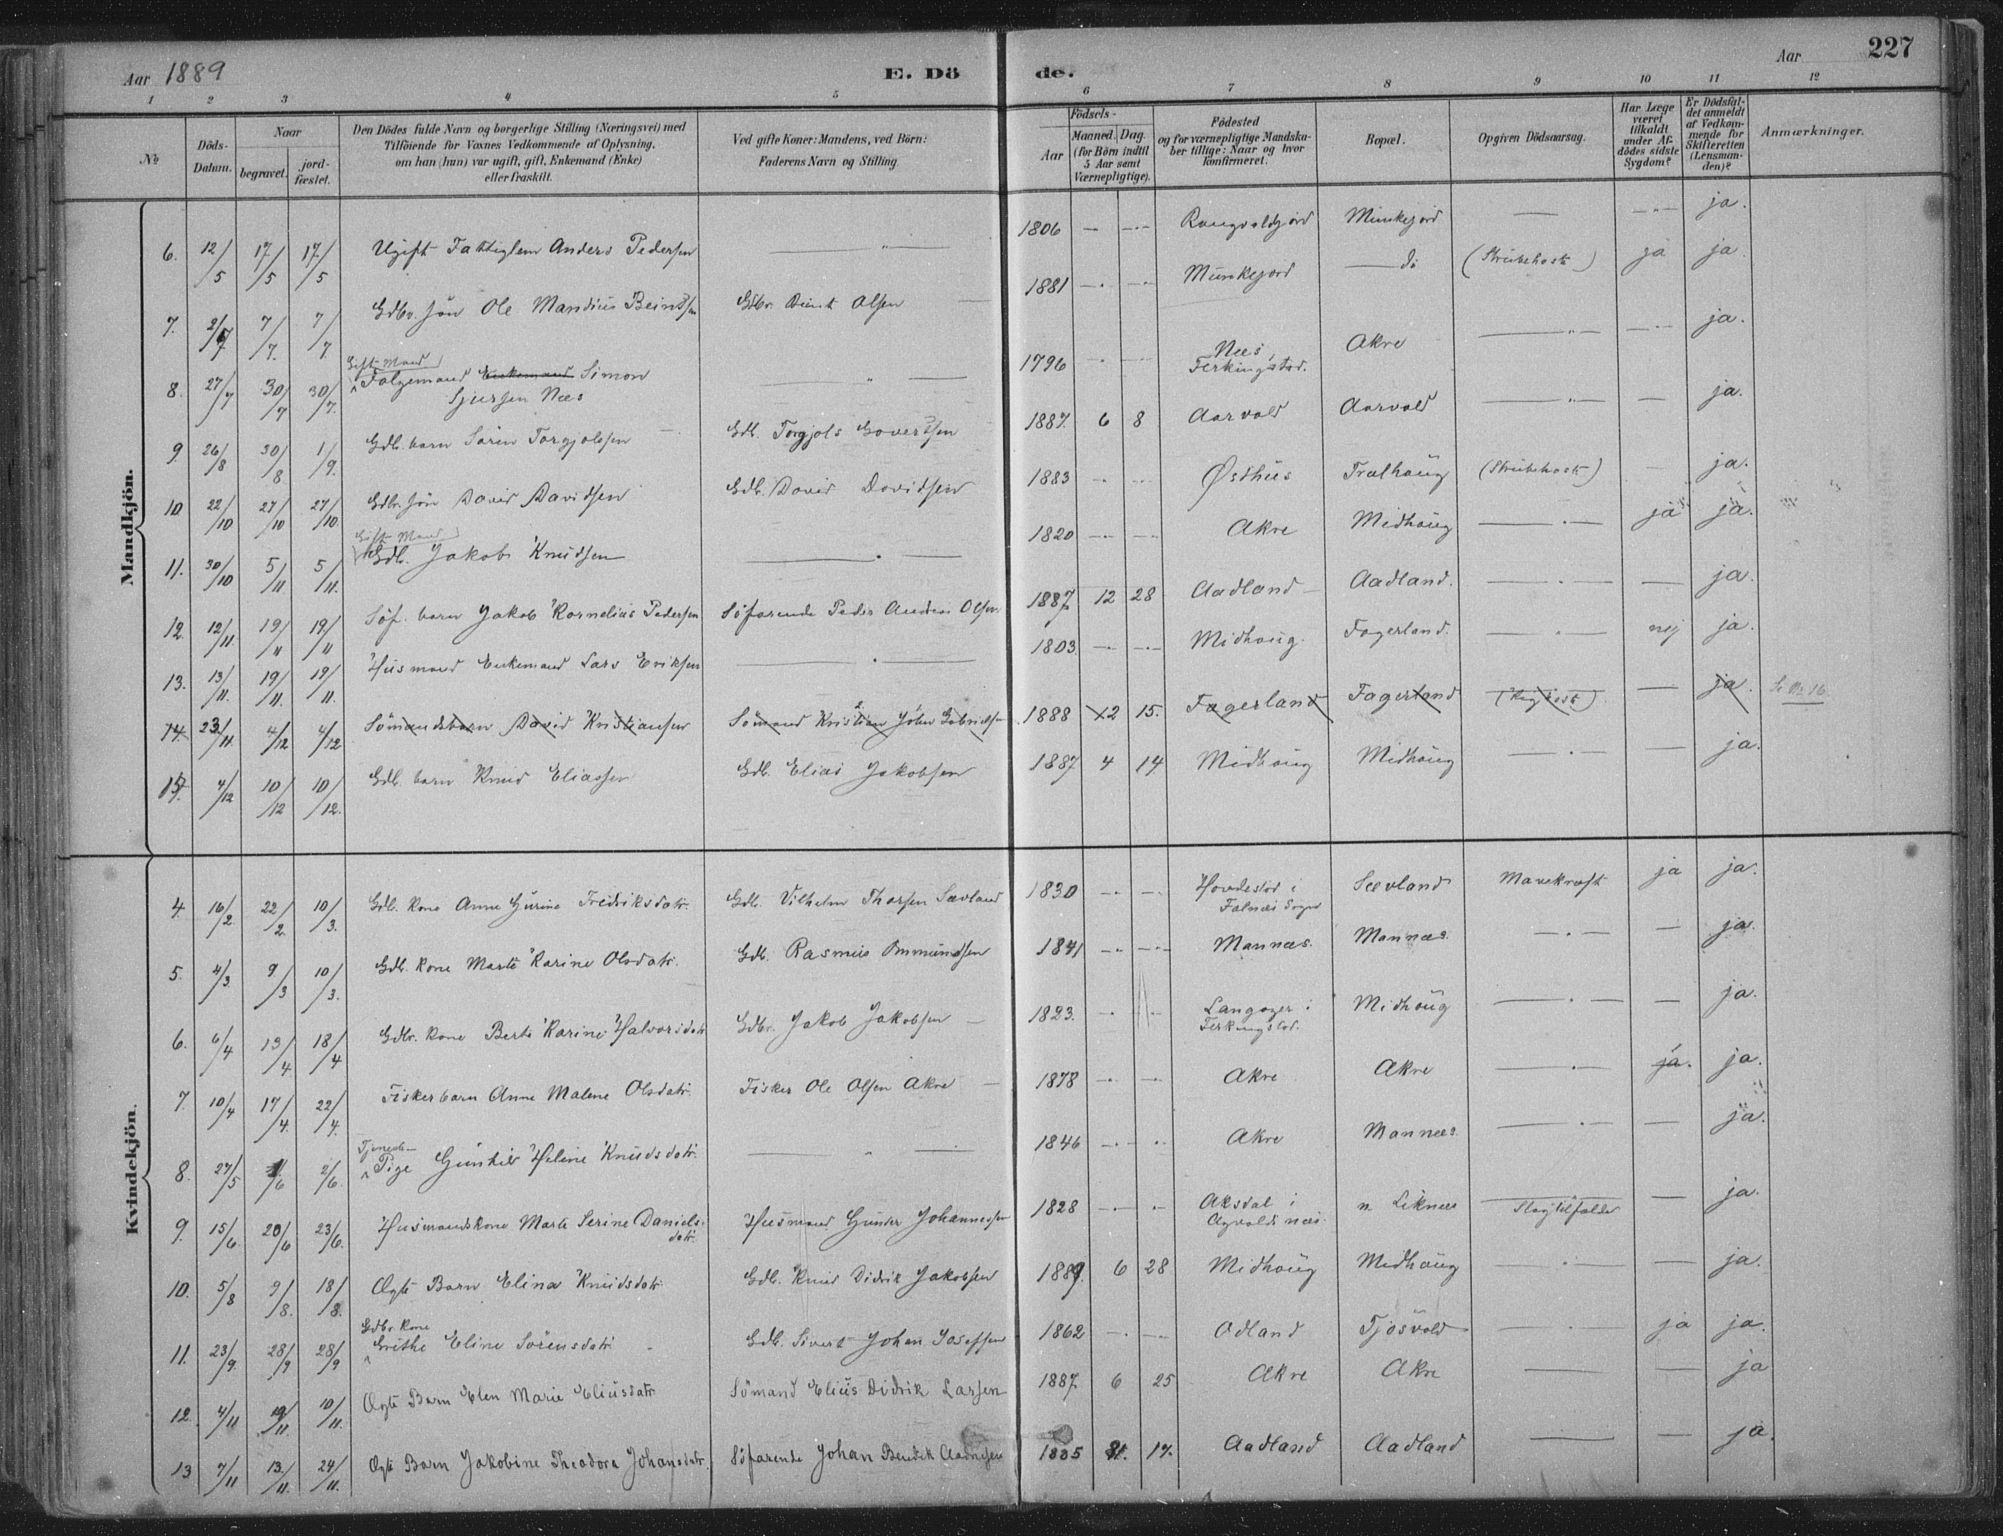 Aar 1889 E. Dö de. Aar 227
1 2 3 4 5 6 7 8 9 10 11 12
№ Döds-Datum. Naar begravet. jord-fæstet. Den Dödes fulde Navn og borgerlige Stilling (Næringsvei) med Tilföiende for Voxnes Vedkommende af Oplysning, om han (hun) var ugift, gift, Enkemand (Enke) eller fraskilt. Ved gifte Koner: Mandens, ved Börn: Faderens Navn og Stilling. Födsels- Aar Maaned. Dag. (for Börn indtil 5 Aar samt Værnepligtige). Födested og for værnepligtige Mandskaber tillige: Naar og hvor konfirmeret. Bopæl. Opgiven Dödsaarsag. Har Læge været tilkaldt under Afdödes sidste Sygdom? Er Dödsfaldet anmeldt af Vedkommende for Skifteretten (Lensmanden)? Anmærkninger.
Mandkjön.
6. 12/5 17/5 17/5 Ugift Fattiglem Anders Pedersen — " — 1806 — — Munkejord — — ja.
7. 2/7 7/7. 7/7. Gdbr. sön Ole Mandius Beintsen Gdbr. Beint Olsen — 1881 — — Munkejord — do (Strubehoste) ja ja.
8. 27/7 30/7 30/7. Gift Mand Folgemand Enkemand Simon Sjursen Næs — " — 1796 — — Næs, Ferkingstad. Akre — " — — ja.
9. 26/8 30/8 1/9. Gdb. barn Sören Torgjolsen — Gdb. Torgjols Govertsen 1887. 6 8 Aarvold Aarvold — " — — ja.
10 22/10 27/10 27/10. Gdbr. sön David Davidsen Gdb. David Davidsen 1883 — — Østhus Tralhaug (Strubehoste) — ja.
11. 30/10 5/11 5/11. Gift Mand Gdb. Jakob Knudsen — 1820 — — Akre Midhaug — ja ja.
12. 12/11 19/11 19/11 Söf. barn Jakob Kornelius Pedersen Söfarende Peder Andreas Olsen 1887 12 28 Aadland — Aadland. — — ja.
13. 13/11. 19/11. 19/11. Husmand Enkemand Lars Eriksen — 1803. — — Midhaug. Fagerland. — nej ja.
14. 23/11. 4/12 4/12 Sömandsbarn David Kristiansen Sömand Kristian John Gabrielsen 1888 12 15. Fagerland Fagerland — ja. Se № 16
15. 4/12 10/12 10/12. Gdb. barn Knud Eliassen Gdb. Elias Jakobsen 1887 4 14 Midhaug Midhaug — — ja.
Kvindekjön.
4. 16/2 22/2. 10/3. Gdb. kone Anne Gurine Fredriksdatr. Gdb. Vilhelm Thorsen Sævland 1830 — — i Falnæs Sogn Sævland Mavekræft ja ja.
5. 4/3 9/3 10/3. Gdb. kone Marte Karine Olsdatr. Gdb. Rasmus Ommundsen 1841 — — Mannæs. Mannæs. — — ja.
6. 6/4 13/4 18/4 Gdbr. kone Berta Karine Halvorsdatr Gdbr. Jakob Jakobsen — 1823. — — Langager i Ferkingstad. Midhaug — — ja.
7. 10/4 17/4. 22/4. Fiskerbarn Anne Malene Olsdatr. Fisker Ole Olsen Akre — 1878 — — Akre Akre — ja. ja.
8. 27/5 1/6 2/6. Tjeneste- Pige Gunhild Heline Knudsdatr. — " — 1846 — — Akre Mannæs. — — ja.
9. 15/6. 20/6 23/6. Husmandskone Marte Serine Danielsdatr. Husmand Gunder Johannessen 1828 — — Aksdal i Agvaldsnæs. n. Liknæs Slagtilfælde — ja.
10. 5/8 9/8. 18/8. Ægte Barn Elina Knudsdatr Gdb. Knud Didrik Jakobsen 1889. 6 28 Midhaug Midhaug — — ja.
11. 23/9. 28/9 28/9 Gdbr. kone Grethe Eline Sörensdatr Gdb. Sivert Johan Josefsen 1862 — — Odland Tjösvold — ja ja.
12. 4/11 10/11. 10/11. Ægte Barn Elen Marie Eliusdatr Sömand Elius Didrik Larsen 1887. 6 25 Akre Akre — — ja
13 7/11 13/11. 24/11. Ægte Barn Jakobine Theodora Johansdatr. Söfarende Johan Bendik Aadnesen 1885 17. Aadland Aadland — — ja.